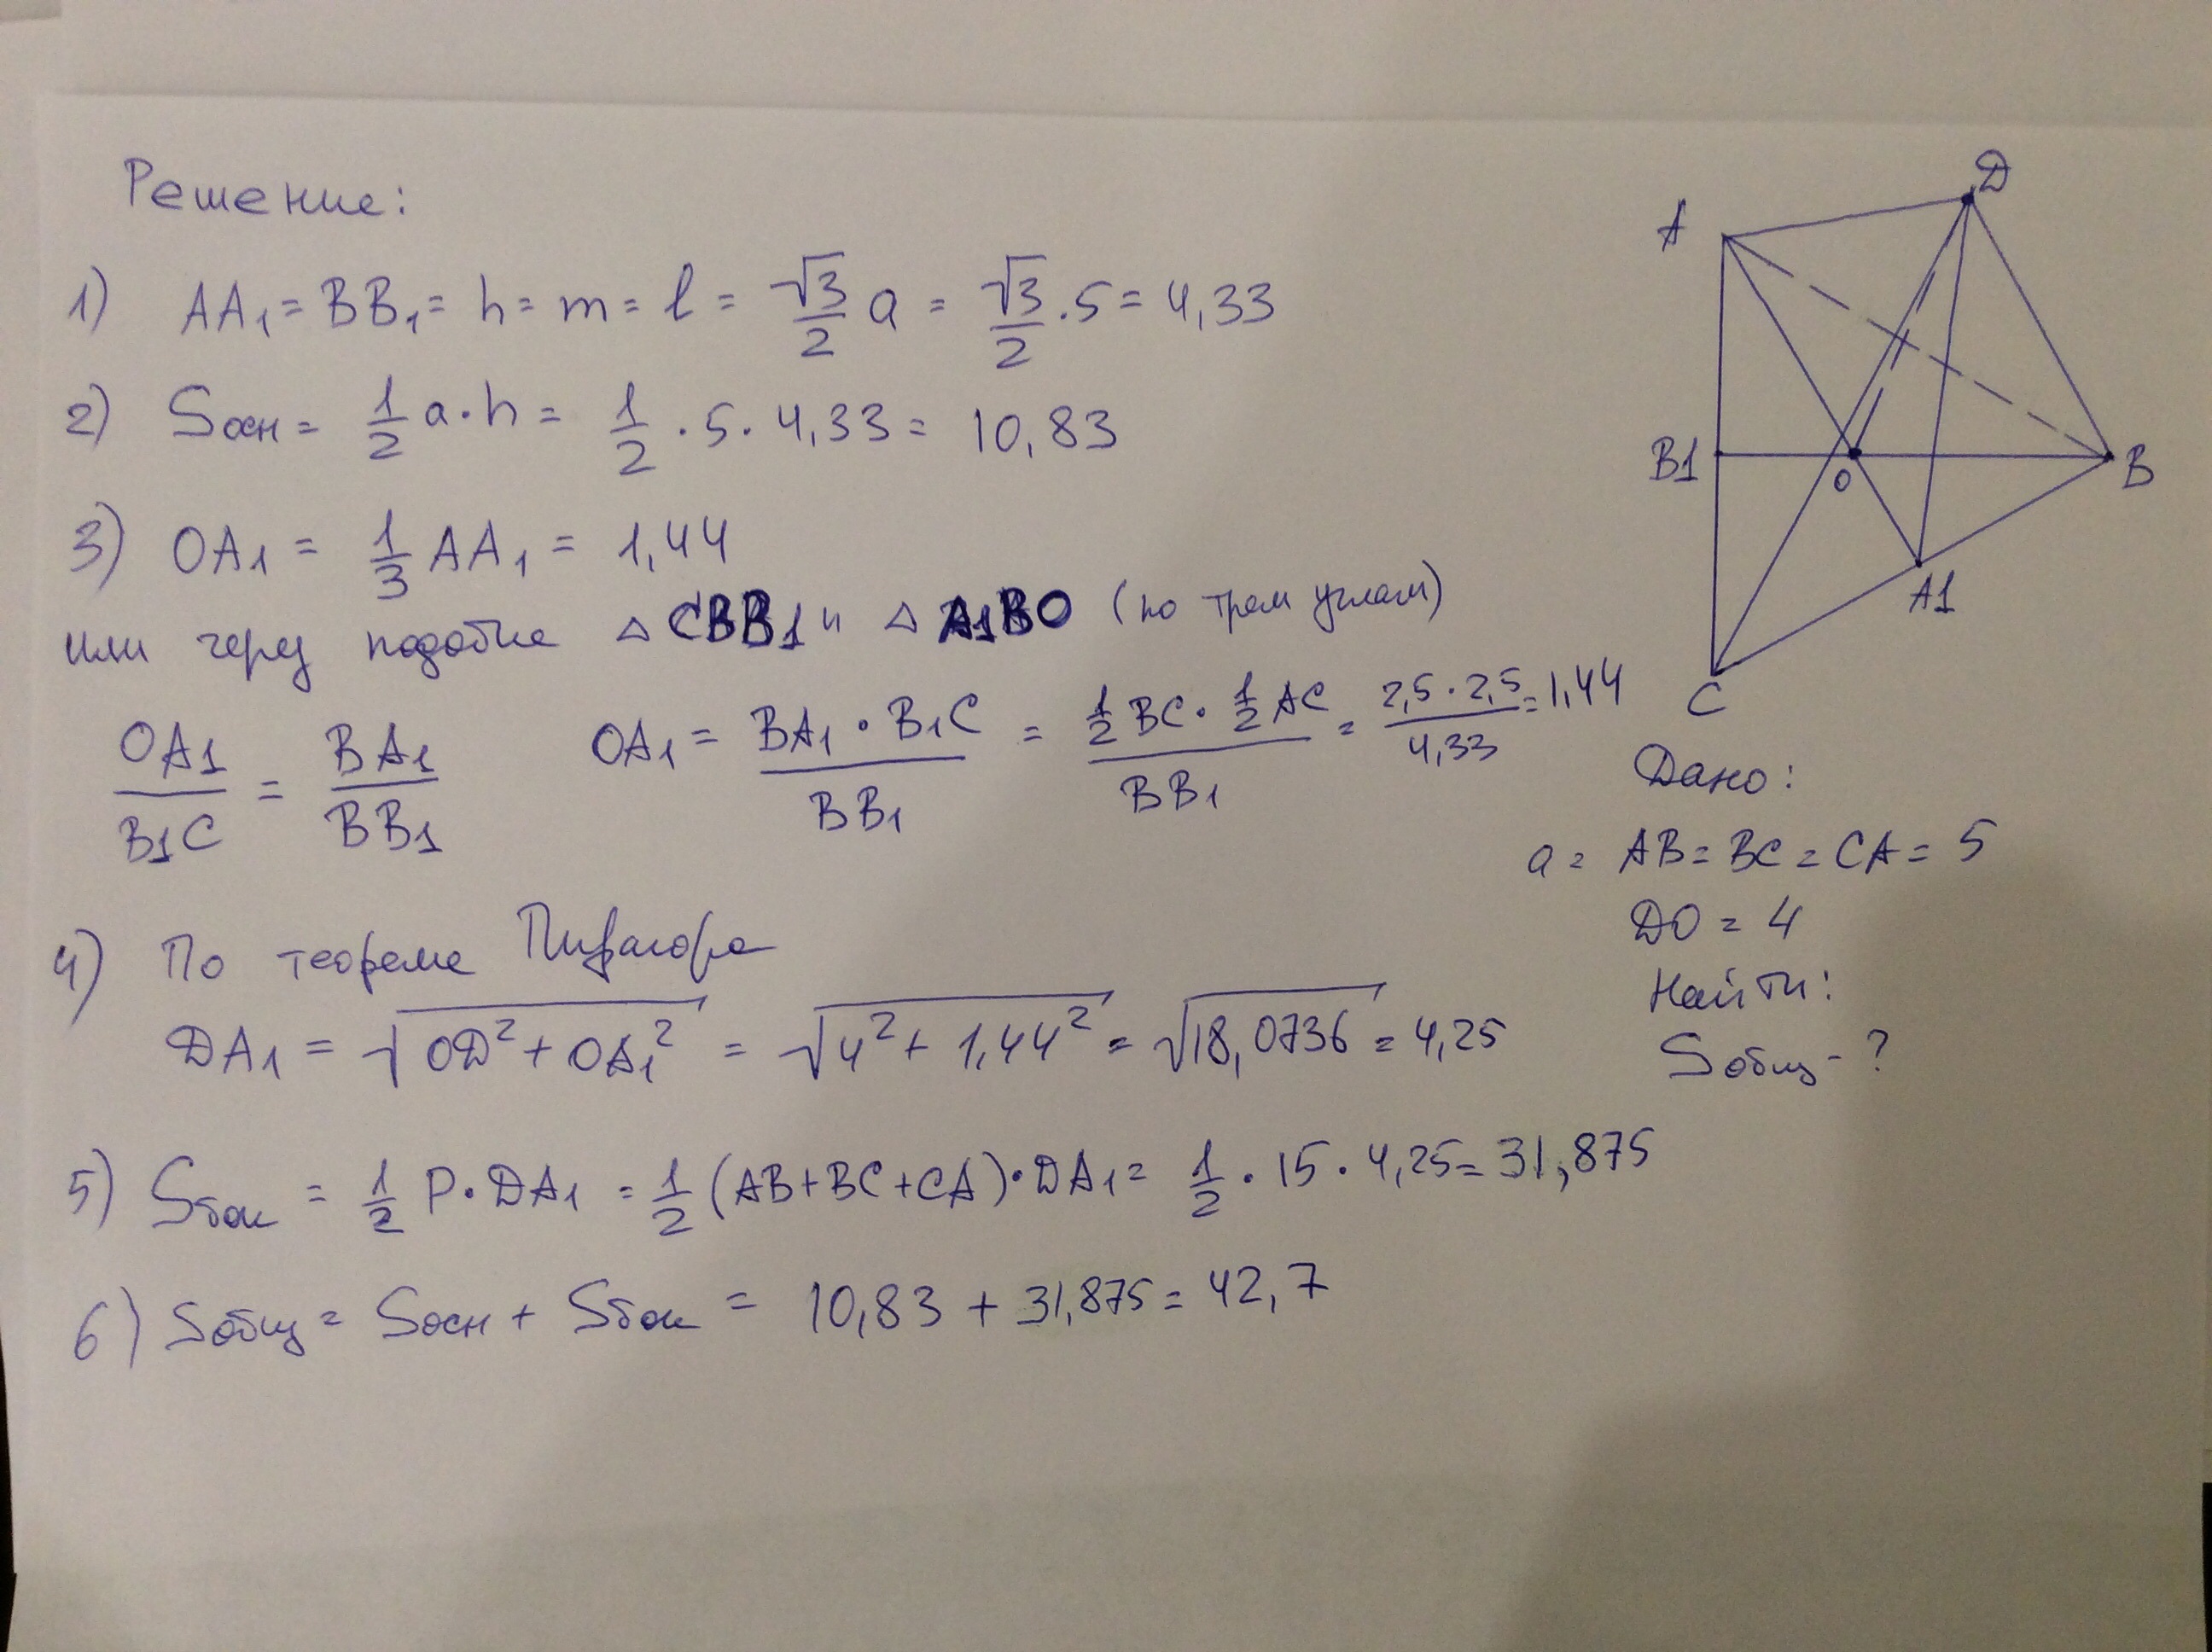 Решение:
1) AA₁ = BB₁ = h = m = l = √3/2 a = √3/2 · 5 = 4,33
2) Sосн = 1/2 a · h = 1/2 · 5 · 4,33 = 10,83
3) OA₁ = 1/3 AA₁ = 1,44
или через подобие △ CBB₁ и △ A₁BO (по трем углам)
OA₁/B₁C = BA₁/BB₁ OA₁ = BA₁ · B₁C / BB₁ = 1/2 BC · 1/2 AC / BB₁ = 2,5 · 2,5 / 4,33 = 1,44
4) По теореме Пифагора
DA₁ = √(OD² + OA₁²) = √(4² + 1,44²) = √18,0736 = 4,25
5) Sбок = 1/2 P · DA₁ = 1/2 (AB + BC + CA) · DA₁ = 1/2 · 15 · 4,25 = 31,875
6) Sобщ = Sосн + Sбок = 10,83 + 31,875 = 42,7
D
A
B1
O
B
A1
C
Дано:
a = AB = BC = CA = 5
DO = 4
Найти:
Sобщ - ?